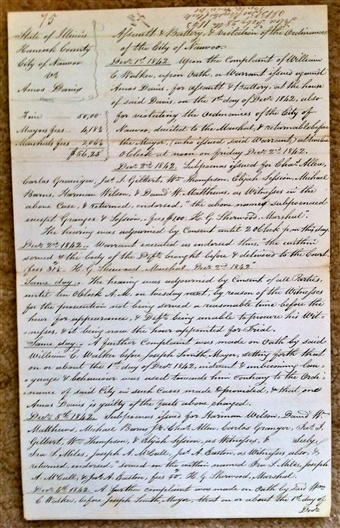 75
State of Illinois
Hancock County
City of Nauvoo
vs
Amos Davis
Fine 50,00
Mayors fees 4,18½
Marshals fees 2,06¼
$56,25
Assault & Battery, & violation of the Ordinances
of the City of Nauvoo.
Decr. 1st 1842. Upon the Complaint of William
C. Walker, upon Oath, a Warrant issued against
Amos Davis, for Assault & Battery, at the house
of said Davis, on the 1st day of Decr. 1842, also
for violating the Ordinances of the City of
Nauvoo, directed to the Marshal, & returnable before
the Mayor, (who issued said Warrant,) at
O'clock at noon on Friday Decr. 2nd 1842.
Decr. 2nd 1842. Subpoena issued for Chas. Allen,
Carlos Granger, Jas. I. Gilbert, Wm. Thompson, Elijah Michael
Barns, Harmon Wilson, & David W. Matthews, as Witnesses in the
above Case, & returned, endorsed, "the above named subpoenaed
except Granger & fees $1.00. H. G. Sherwood, Marshal."
The hearing was adjourned by Consent until 2 O'clock p.m. this day.
Decr. 2nd 1842. Warrant executed as endorsed thus "the within
served & the body of the Deft. brought before & delivered to the Court.
fees H. G. Sherwood, Marshal. Decr. 2nd 1842"
Same day. The hearing was adjourned by Consent of all Parties,
until 10 O'Clock A.M. on tuesday next, by reason of the Witnesses
for the prosecution not being served a reasonable time before the
hour for appearance, & Deft. being unable to procure his Wit-
nesses, & it being now the hour appointed for Trial.
Same day. A further Complaint was made on Oath by said
William C. Walker before Joseph Smith, Mayor, setting forth that
on or about the 1st day of Decr. 1842, indecent & unbecoming lan-
guage & behaviour was used towards him contrary to the Ordi-
nances of said City in such Cases made & provided, & that one
Amos Davis is guilty of the facts above charged.
Decr. 5th 1842. Subpoenas issued for Harmon Wilson, David Wm.
Matthews, Michael Barns Jr., Chas. Allen, Carlos Granger, Jas. I.
Gilbert, Wm. Thompson, & Elijah as Witnesses, &
Geo. S. Miles, Joseph A. McCall, Jas. A. Easton, as Witnesses also, &
returned, endorsed "served on the within named Geo. S. Miles, Joseph
A. McCall, & Jas. A. Easton, fees 50. H. G. Sherwood, Marshal.
Decr. 6th 1842. A further complaint was made on Oath by said Wm.
C. Walker, before Joseph Smith, Mayor, that on or about the 1st day of
Decr.